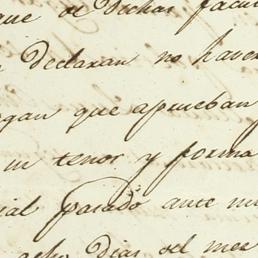 que de dichas facul
declaran no haver
gan que aprueban
su tenor y forma
ial pasado ante mi
ocho dias del mes